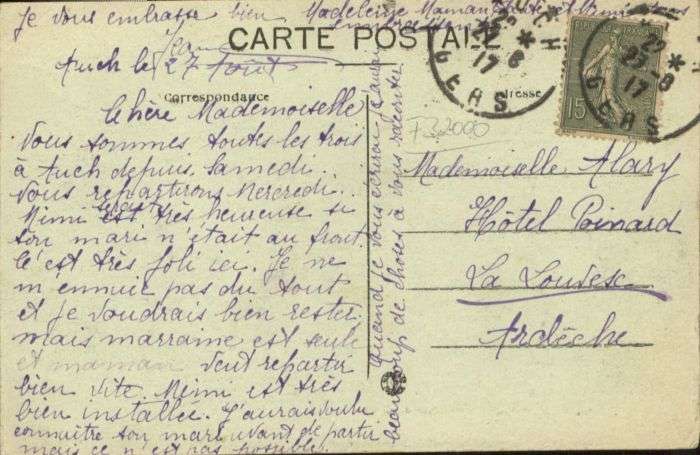 Je vous embrasse bien Madeleine Maman
Jean
CARTE POSTALE
Auch le 27 Août
Correspondance
Chère Mademoiselle
Nous sommes toutes les trois
à Auch depuis Samedi.
Nous repartirons Mercredi..
Mimi est très heureuse si
serait
son mari n'était au front.
C'est très joli ici. Je ne
m'ennuie pas du tout
et je voudrais bien rester
mais marraine est seule
et maman veut repartir
bien vite. Mimi est très
bien installée. J'aurais voulu
connaître son mari avant de partir
mais ce n'est pas possible.
Quand je vous écrirai j'aurai
beaucoup de choses à vous raconter
Adresse
F32000
Mademoiselle Alary
Hôtel Poinard
La Louvesc
Ardèche
22 *
27-8
17
GERS
15
22 *
27-8
17
GERS